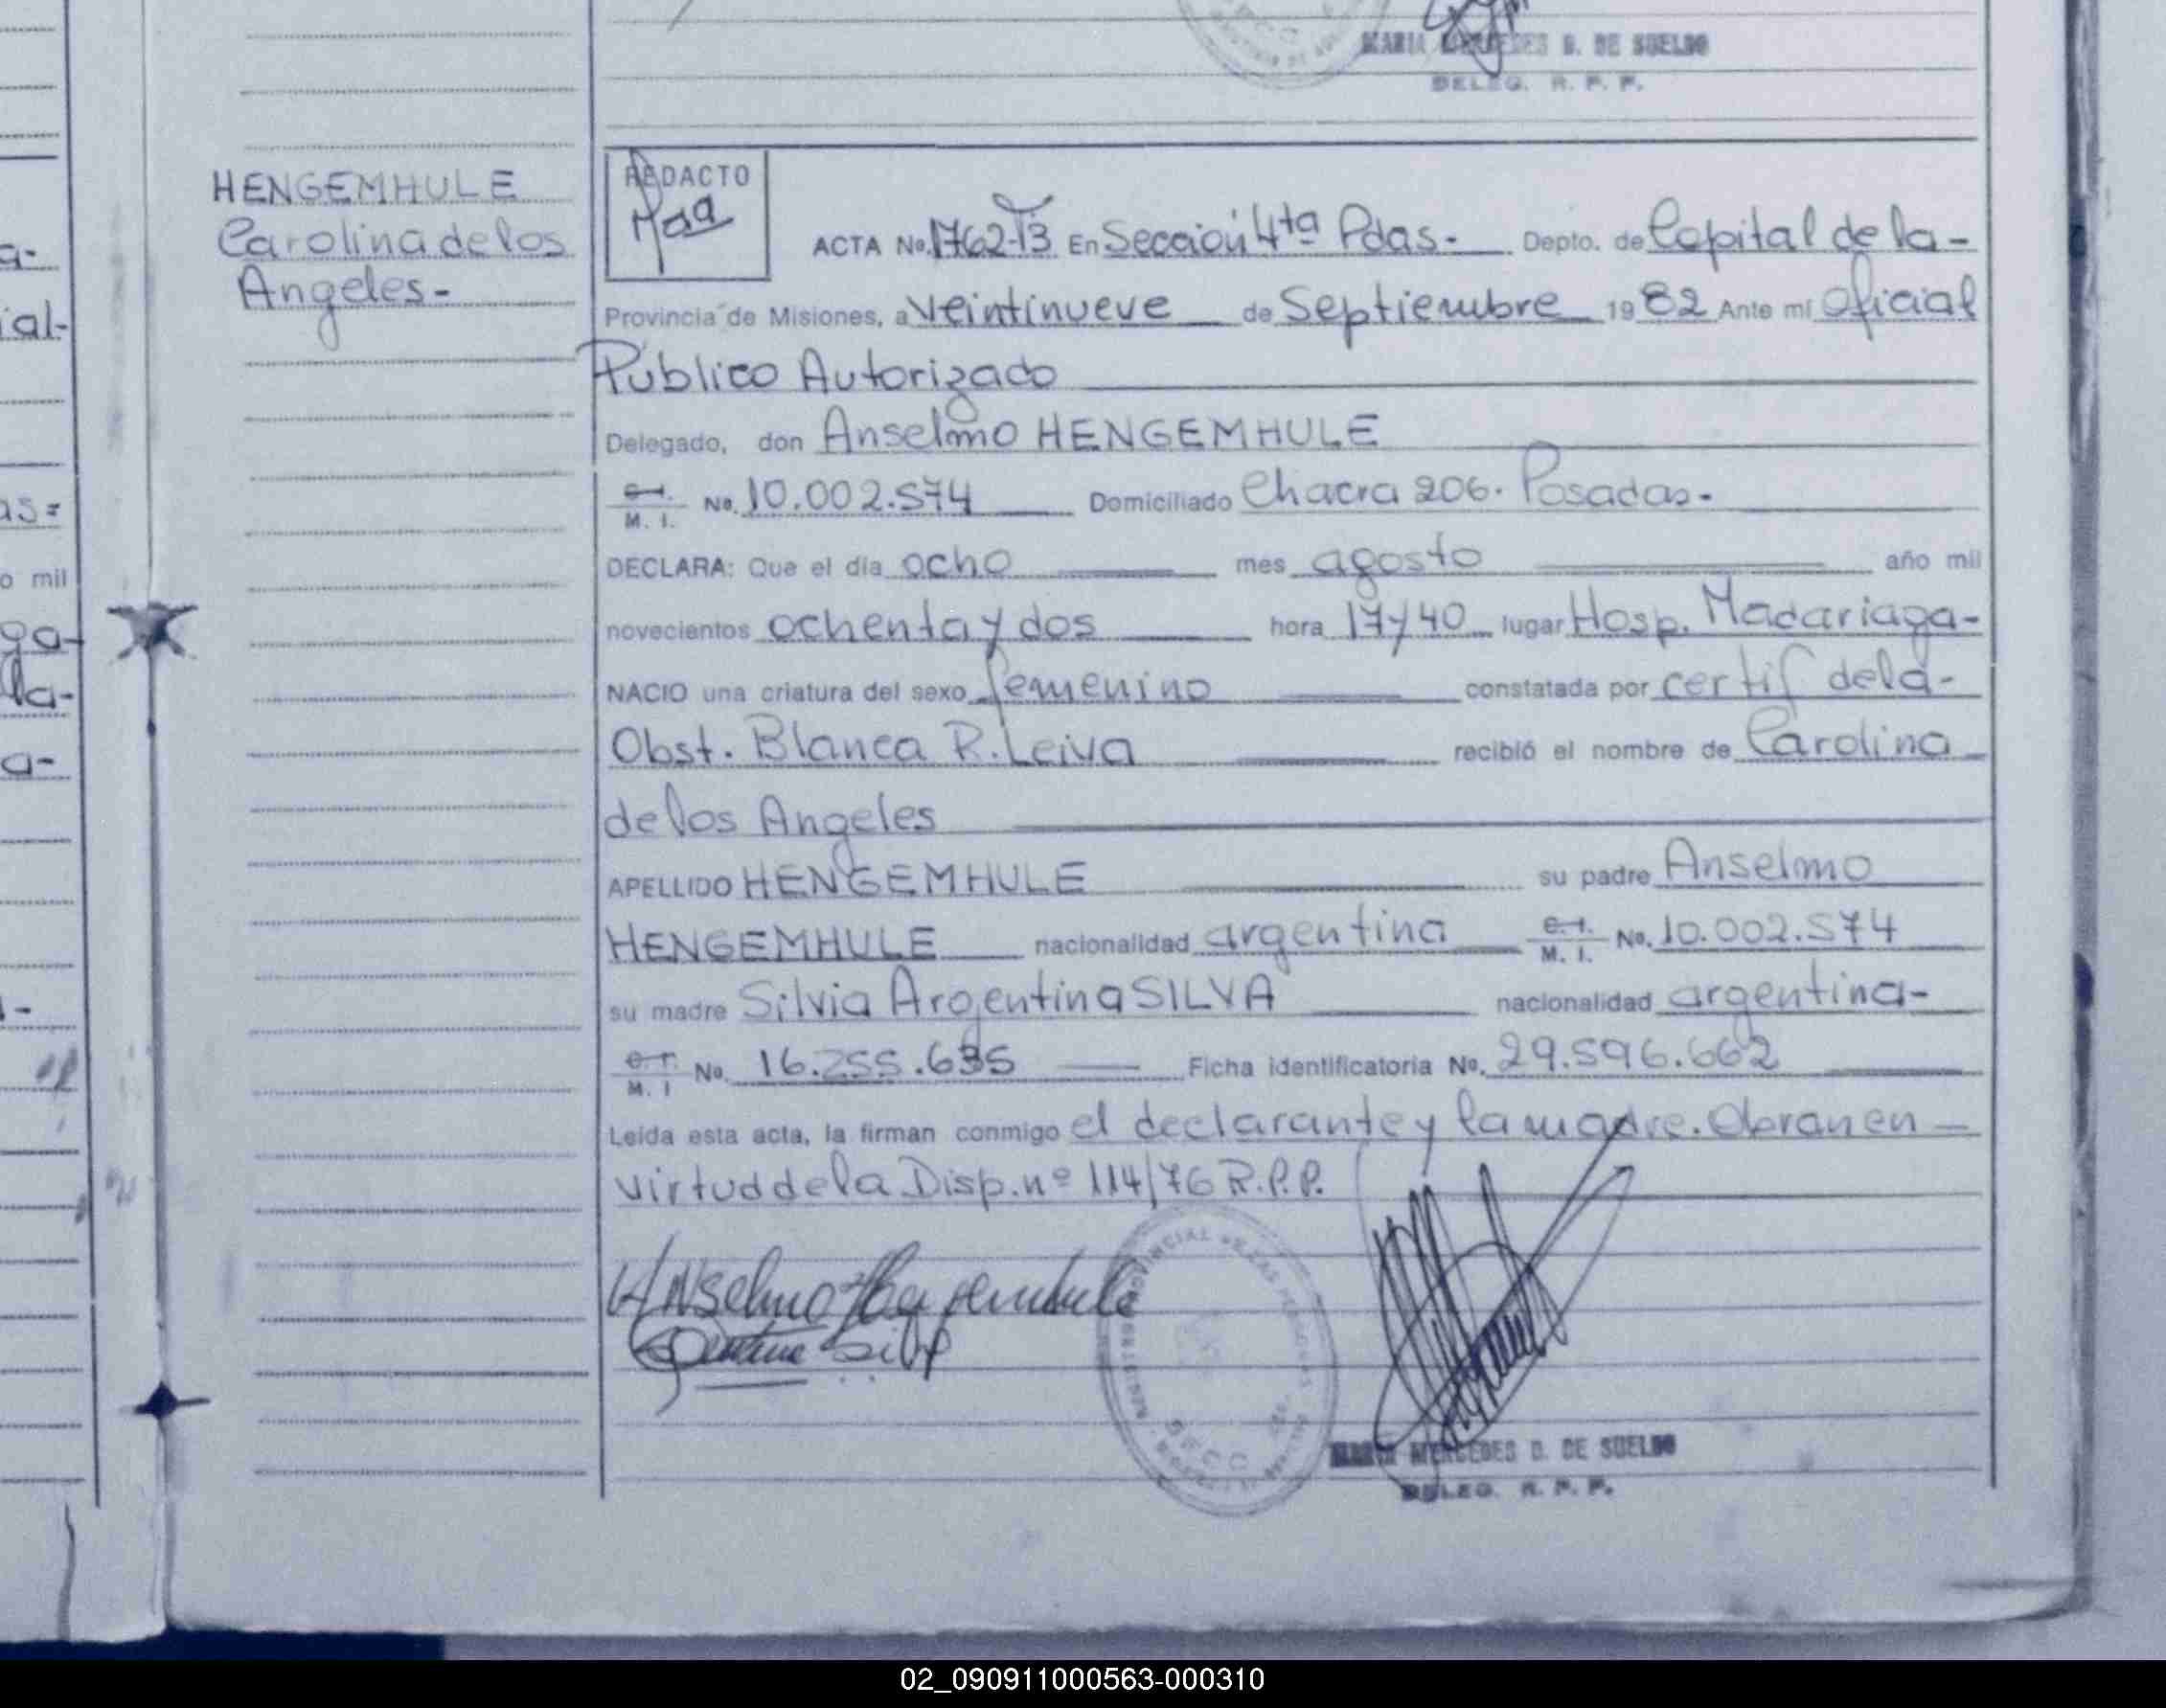 MARIA MERCEDES D. DE SUELDO
DELEG. R. P. P.
HENGEMHULE
Carolina de los
Angeles-
REDACTO
ACTA No. 1762-T3 En Sección 4ta Pdas.- Depto. de Capital de la-
Provincia de Misiones, a veintinueve de Septiembre 1982 Ante mí Oficial
Público Autorizado
Delegado, don Anselmo HENGEMHULE
C.I. M. I. No. 10.002.574 Domiciliado Chacra 206. Posadas.-
DECLARA: Que el día ocho mes agosto año mil
novecientos ochenta y dos hora 17y40 lugar Hosp. Madariaga-
NACIO una criatura del sexo femenino constatada por certif de la-
Obst. Blanca R. Leiva recibió el nombre de Carolina
de los Angeles
APELLIDO HENGEMHULE su padre Anselmo
HENGEMHULE nacionalidad argentina C.I. M. I. No. 10.002.574
su madre Silvia Argentina SILVA nacionalidad argentina-
C.I. M. I No. 16.255.635 Ficha identificatoria No. 29.596.662
Leída esta acta, la firman conmigo el declarante y la madre. Obran en
virtud de la Disp. nº 114/76 R.P.P.
Anselmo Hengemhule
Silva
MARIA MERCEDES D. DE SUELDO
DELEG. R. P. P.
ial-
as=
o mil
ga-
la-
a-
02_090911000563-000310